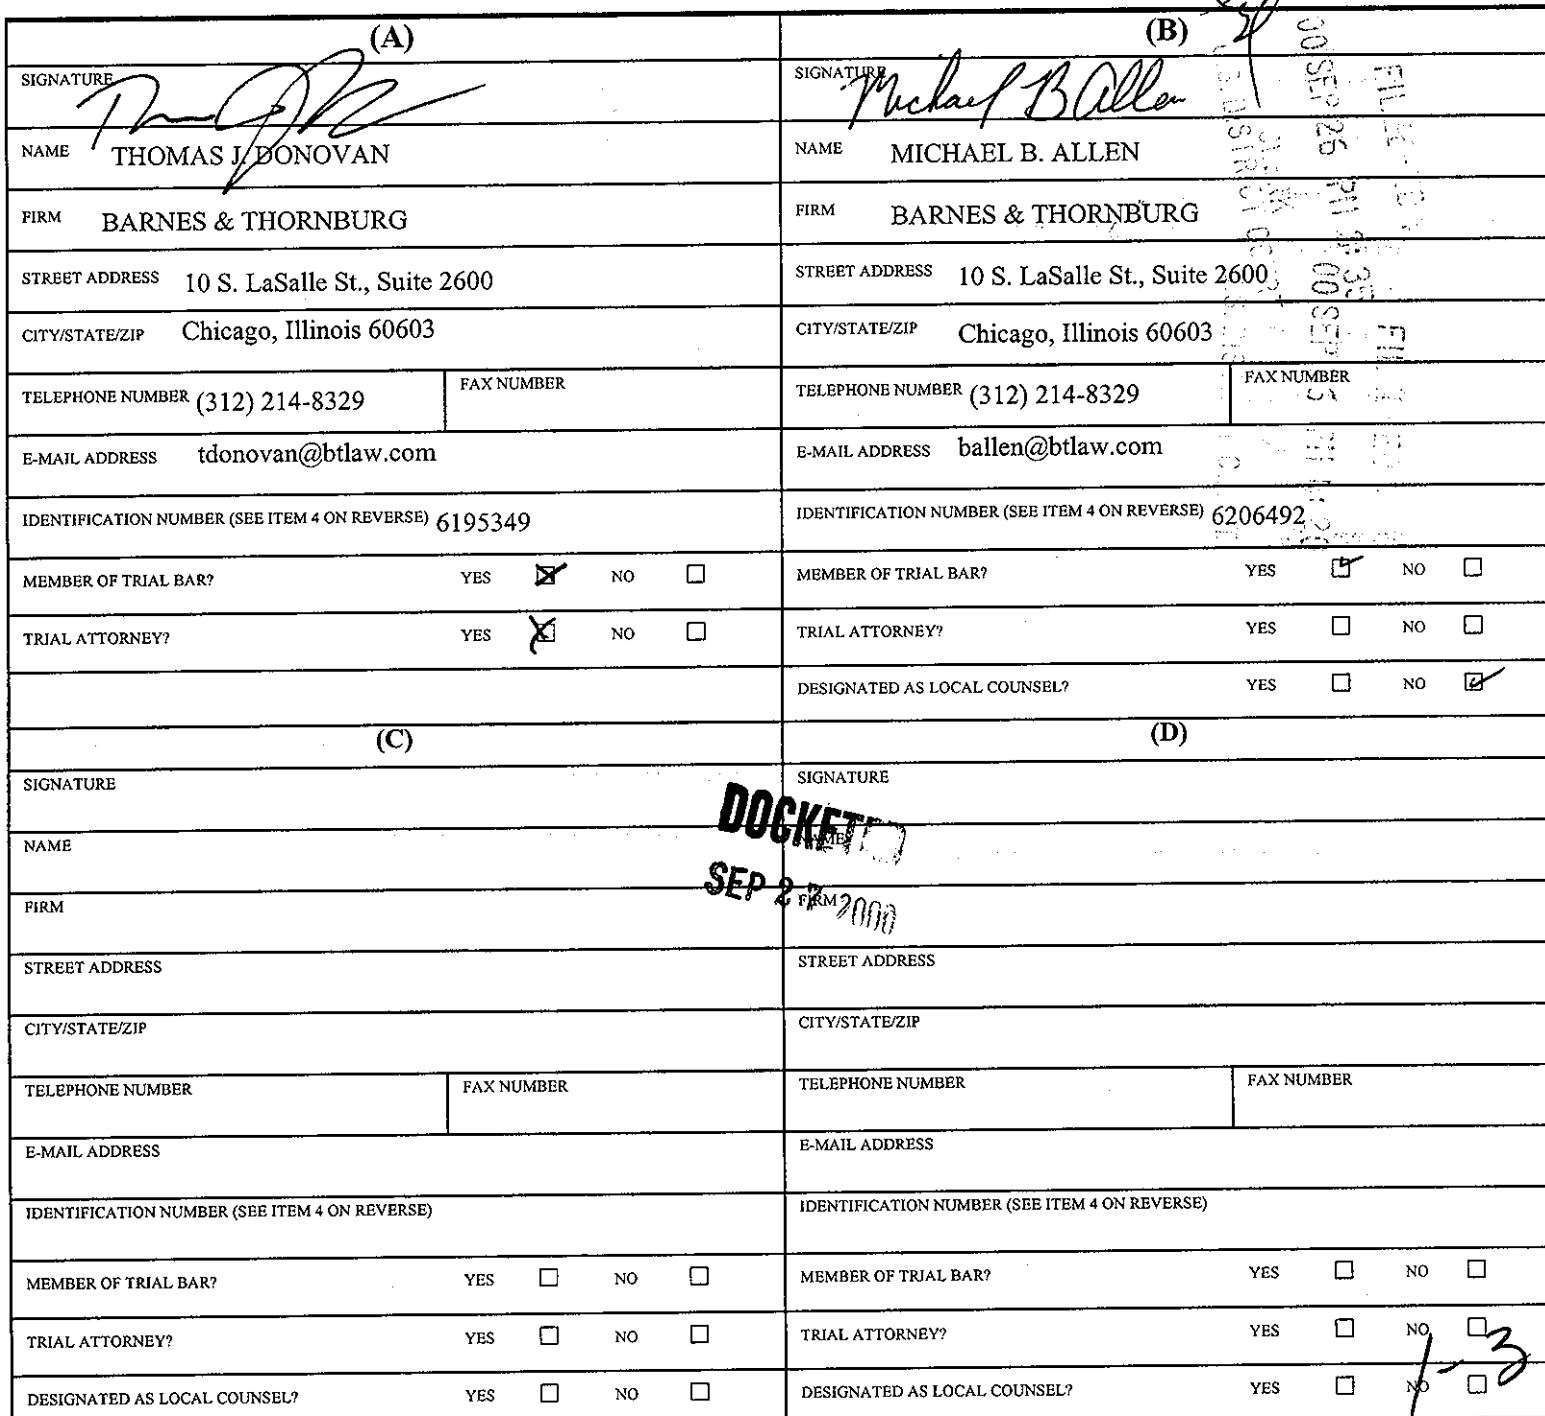 (A)
SIGNATURE
NAME THOMAS J. DONOVAN
FIRM BARNES & THORNBURG
STREET ADDRESS 10 S. LaSalle St., Suite 2600
CITY/STATE/ZIP Chicago, Illinois 60603
TELEPHONE NUMBER (312) 214-8329 FAX NUMBER
E-MAIL ADDRESS tdonovan@btlaw.com
IDENTIFICATION NUMBER (SEE ITEM 4 ON REVERSE) 6195349
MEMBER OF TRIAL BAR? YES NO
TRIAL ATTORNEY? YES NO
(B)
SIGNATURE Michael B Allen
NAME MICHAEL B. ALLEN
FIRM BARNES & THORNBURG
STREET ADDRESS 10 S. LaSalle St., Suite 2600
CITY/STATE/ZIP Chicago, Illinois 60603
TELEPHONE NUMBER (312) 214-8329 FAX NUMBER
E-MAIL ADDRESS ballen@btlaw.com
IDENTIFICATION NUMBER (SEE ITEM 4 ON REVERSE) 6206492
MEMBER OF TRIAL BAR? YES NO
TRIAL ATTORNEY? YES NO
DESIGNATED AS LOCAL COUNSEL? YES NO
00 SEP 26 PM 3:35
(C)
SIGNATURE
NAME
FIRM
STREET ADDRESS
CITY/STATE/ZIP
TELEPHONE NUMBER FAX NUMBER
E-MAIL ADDRESS
IDENTIFICATION NUMBER (SEE ITEM 4 ON REVERSE)
MEMBER OF TRIAL BAR? YES NO
TRIAL ATTORNEY? YES NO
DESIGNATED AS LOCAL COUNSEL? YES NO
DOCKETED
SEP 27 2000
(D)
SIGNATURE
NAME
FIRM
STREET ADDRESS
CITY/STATE/ZIP
TELEPHONE NUMBER FAX NUMBER
E-MAIL ADDRESS
IDENTIFICATION NUMBER (SEE ITEM 4 ON REVERSE)
MEMBER OF TRIAL BAR? YES NO
TRIAL ATTORNEY? YES NO
DESIGNATED AS LOCAL COUNSEL? YES NO
1-3